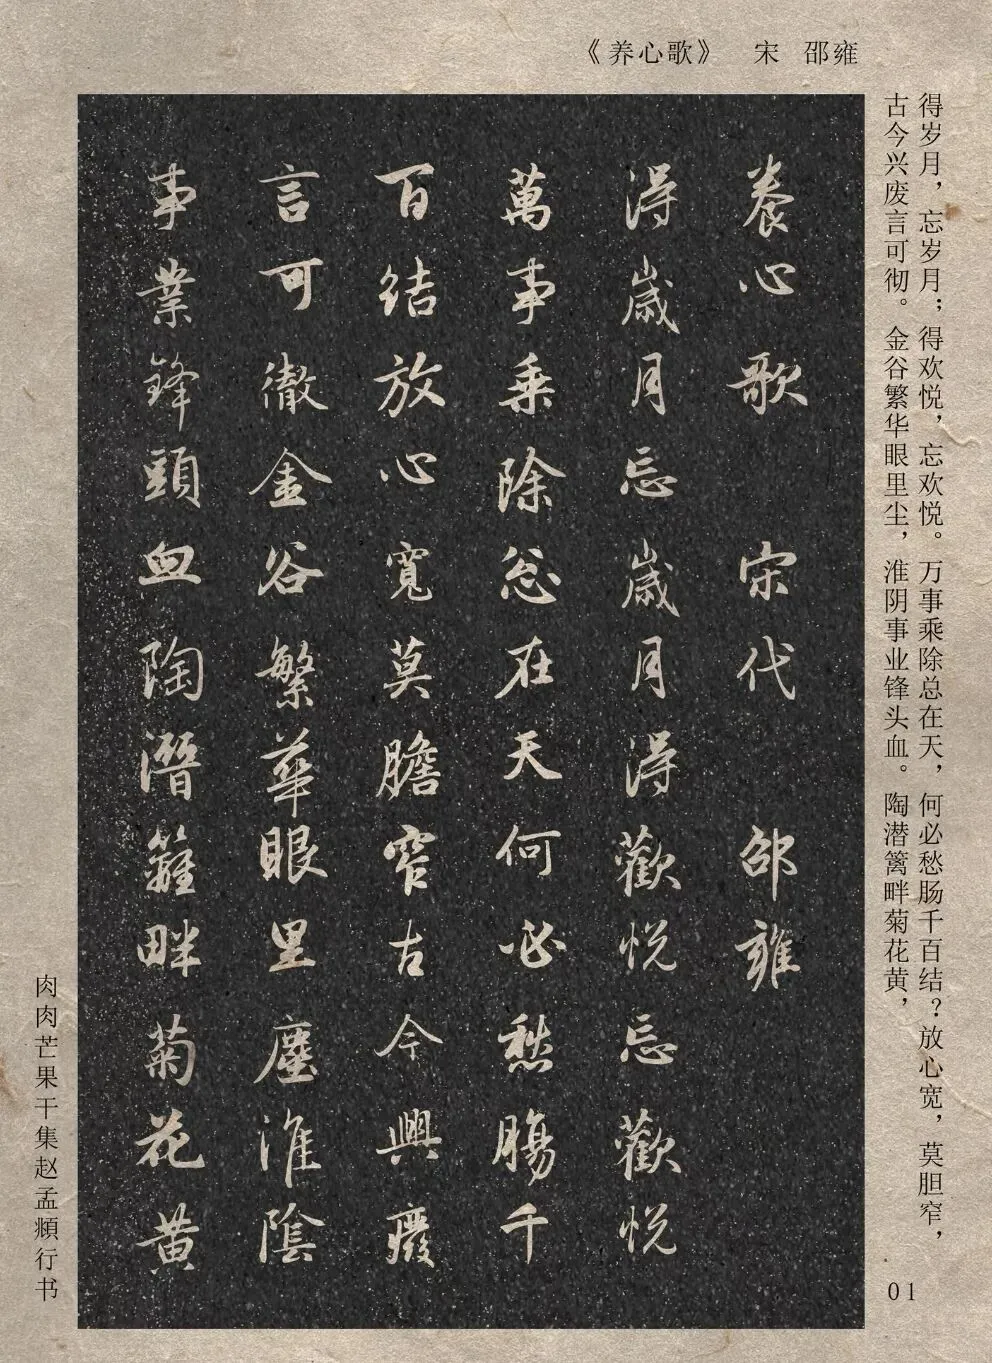 《养心歌》 宋 邵雍
得岁月，忘岁月；得欢悦，忘欢悦。万事乘除总在天，何必愁肠千百结？放心宽，莫胆窄，
古今兴废言可彻。金谷繁华眼里尘，淮阴事业锋头血。陶潜篱畔菊花黄，
养心歌 宋代 邵雍
得歲月忘歲月得歡悦忘歡悦
萬事乘除忩在天何必愁腸千
百结放心寬莫膽窄古今興廢
言可徹金谷繁華眼里塵淮陰
事業鋒頭血陶潛籬畔菊花黄
肉肉芒果干集赵孟頫行书
01